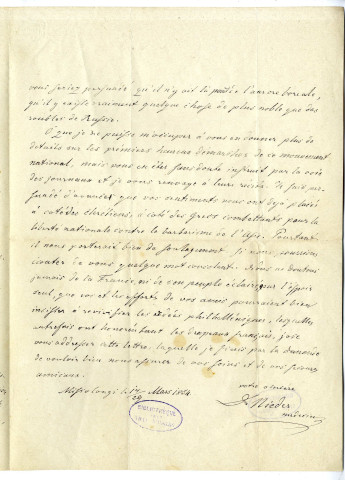 vous seriez persuadé qu'il n'y ait la pensée l'aurore boréale,
qu'il y existe vraiment quelque chose de plus noble que des
roubles de Russie.
O que je ne puisse m'occuper à vous en donner plus de
détails sur les premières heureuses démarches de ce mouvement
national, mais vous en êtes sans doute instruit par la voie
des journaux et je vous renvoye à leurs récits. Je suis per-
suadé d'avance que vos sentiments vous ont déjà placé
à côté des chrétiens, à côté des grecs combattants pour la
liberté nationale contre la barbarisme de l'Asie. Pourtant
il nous porterait bien du soulagement si nous pourrions
de vous quelque mot consolant. Nous ne doutons
jamais de la France, ni de son peuple éclairé l'esprit
seul, que vos et les efforts de vos amis pourraient bien
à revivifier les idées philhelléniques, lesquelles
autrefois ont honoré les drapeaux français, j'ose
vous adresser cette lettre, laquelle je finis par la demande
de vouloir bien nous assurer de vos soins et de vos
amicaux.
votre sincère
Missolongi le 17/29 Mars 1854.
D. Nieder
médecin
BIBLIOTHEQUE